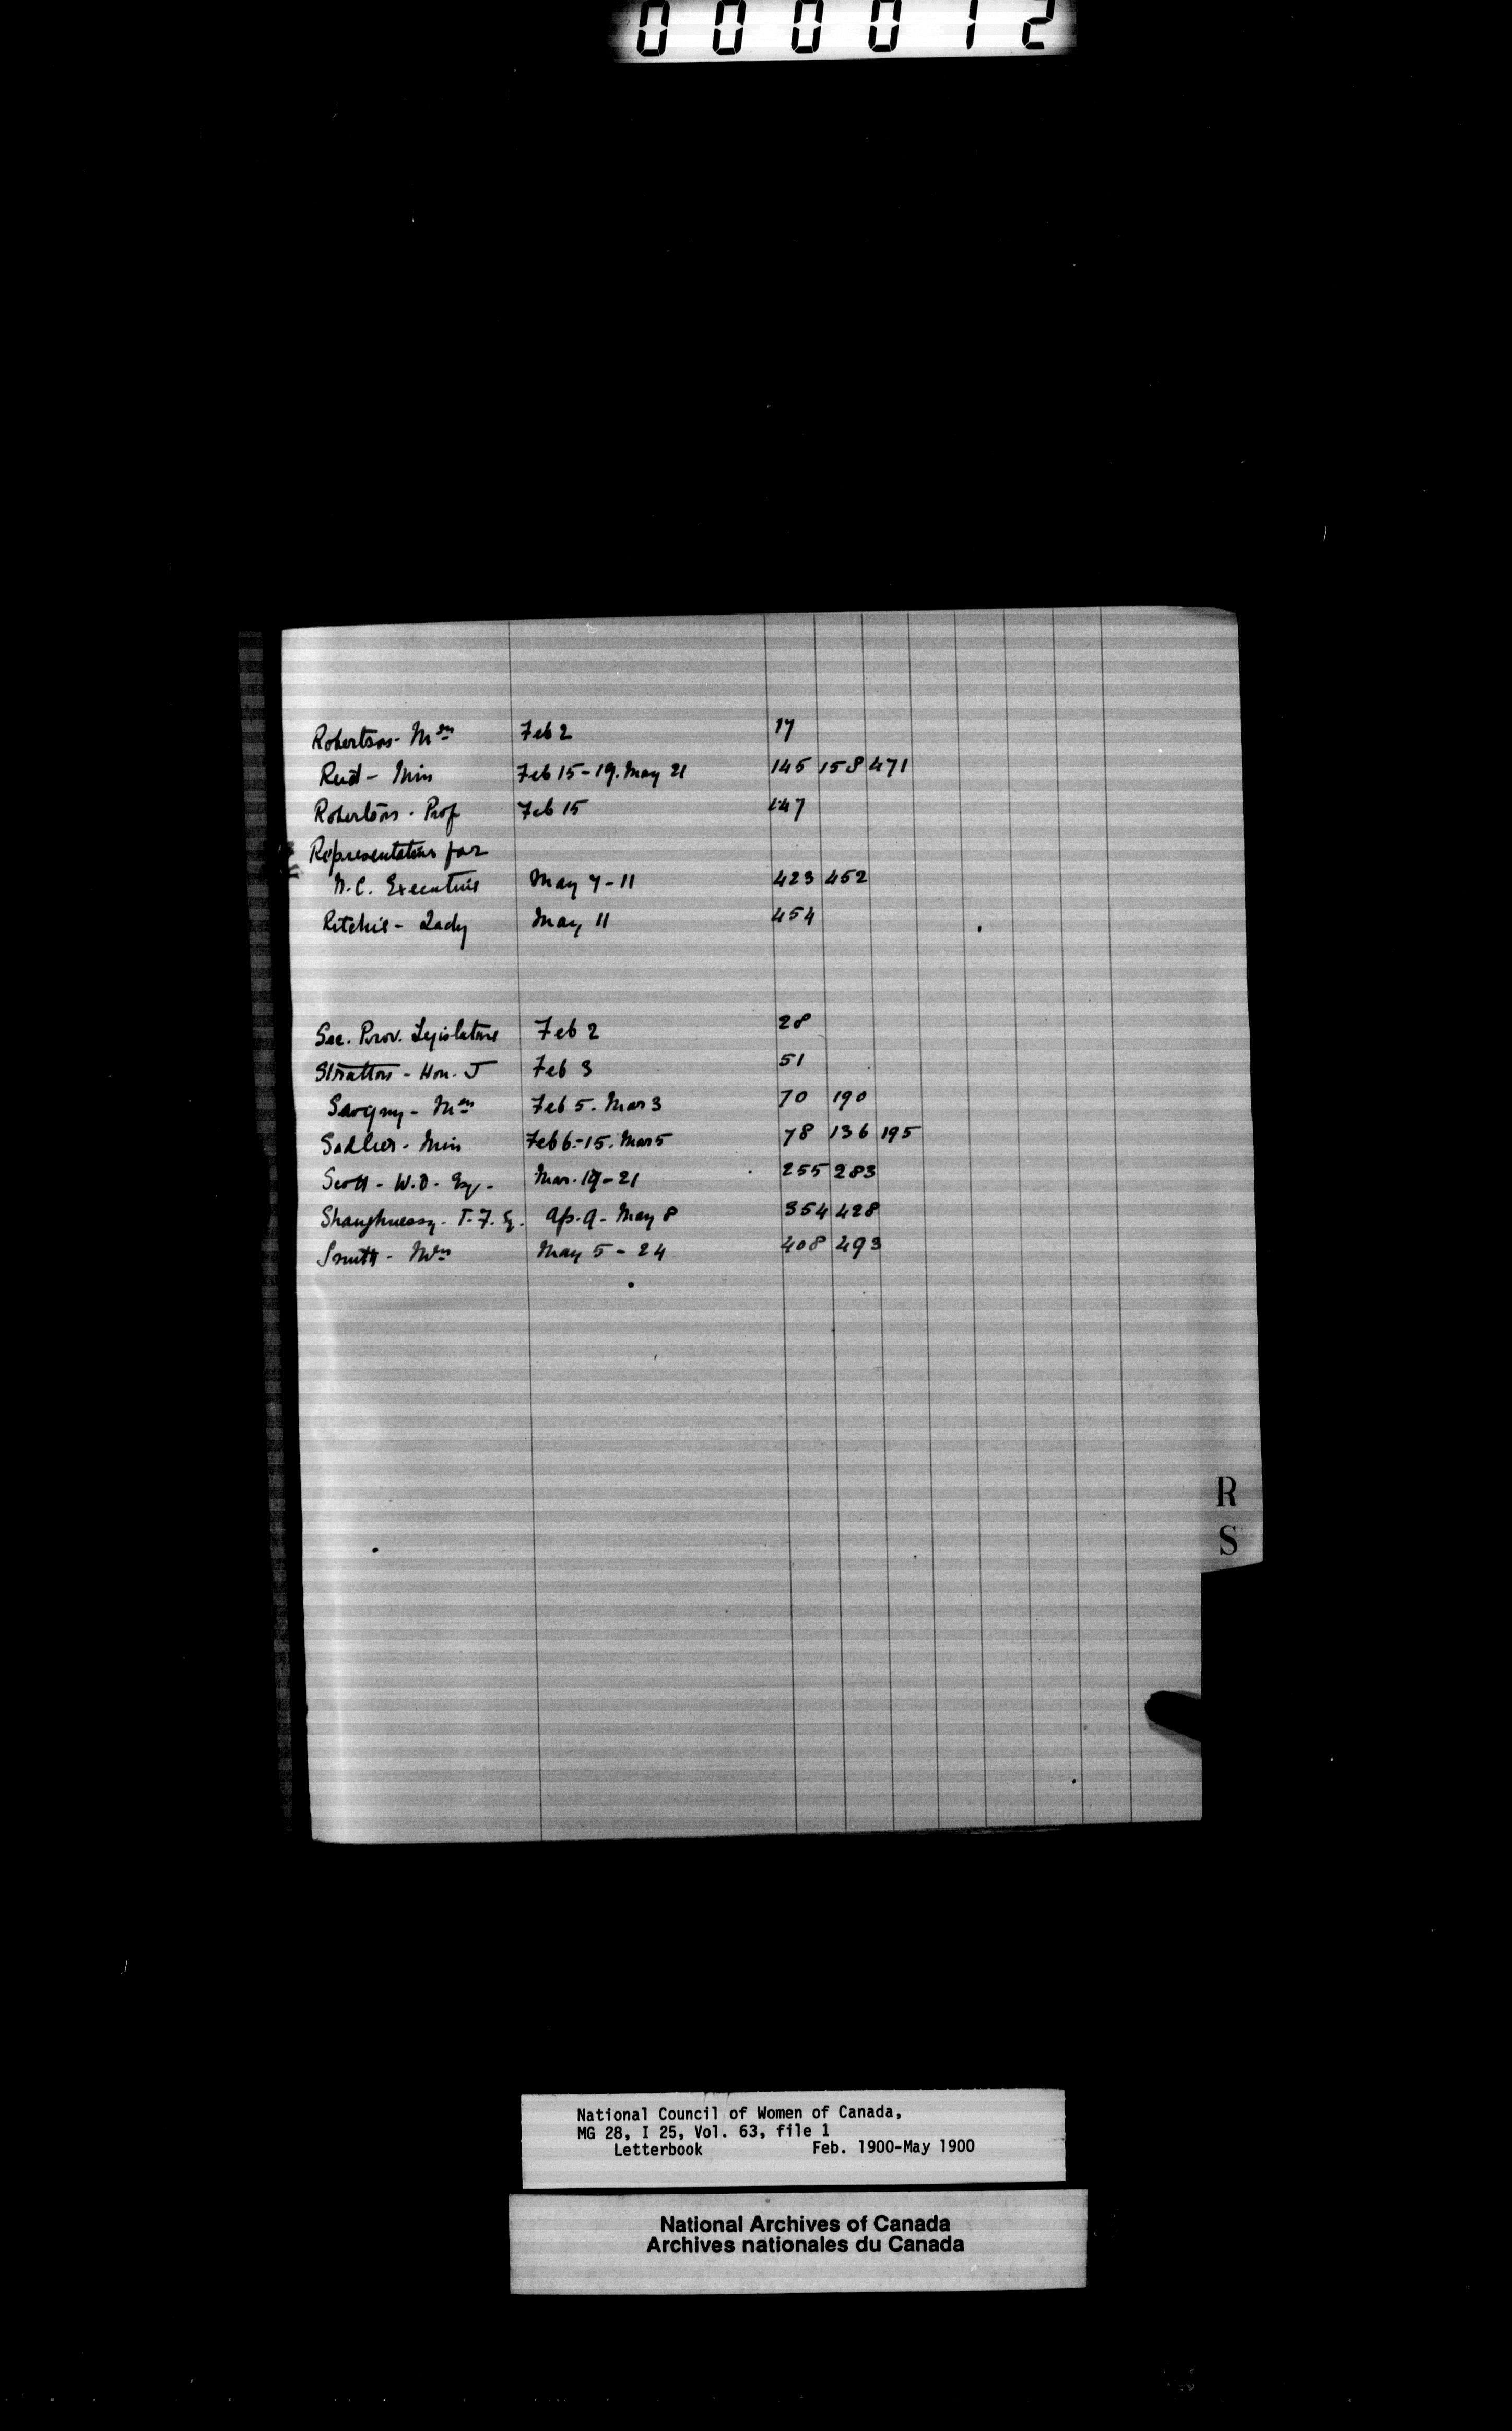 000012
Robertson - Mrs Feb 2 17
Reid - Miss Feb 15-19. May 21 145 158 471
Robertson. Prof Feb 15 147
Representatives for
N.C. Executive May 7-11 423 452
Ritchie - Lady May 11 454
Sec. Prov. Legislature Feb 2 28
Stratton - Hon. J Feb 3 51
Savigny - Mrs Feb 5. Mar 3 70 190
Sadlier - Miss Feb 6.-15. Mar 5 78 136 195
Scott - W.D. Esq - Mar. 19-21 255 283
Shaughnessy - T. F. E. Ap. 9 - May 8 354 428
Smith - Mrs May 5 - 24 408 493
R
S
National Council of Women of Canada,
MG 28, I 25, Vol. 63, file 1
Letterbook Feb. 1900-May 1900
National Archives of Canada
Archives nationales du Canada